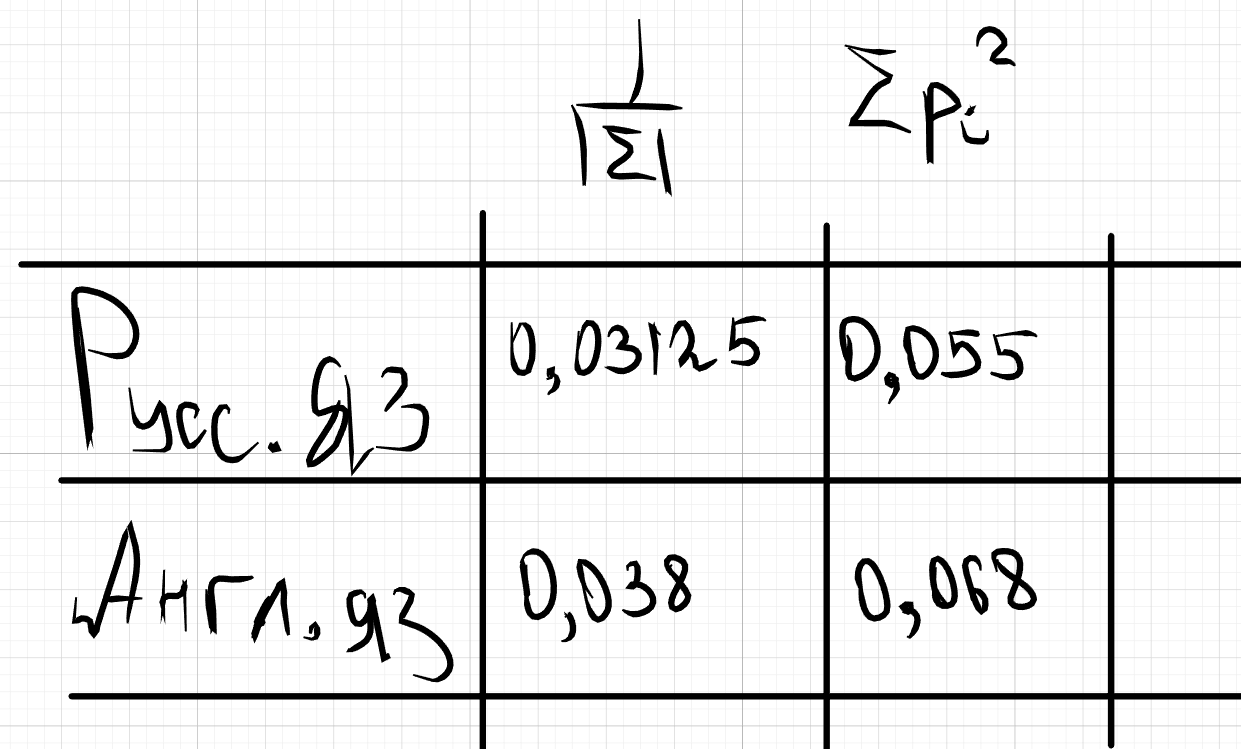 1/|Σ| Σpᵢ²
Русс. яз 0,03125 0,055
Англ. яз 0,038 0,068